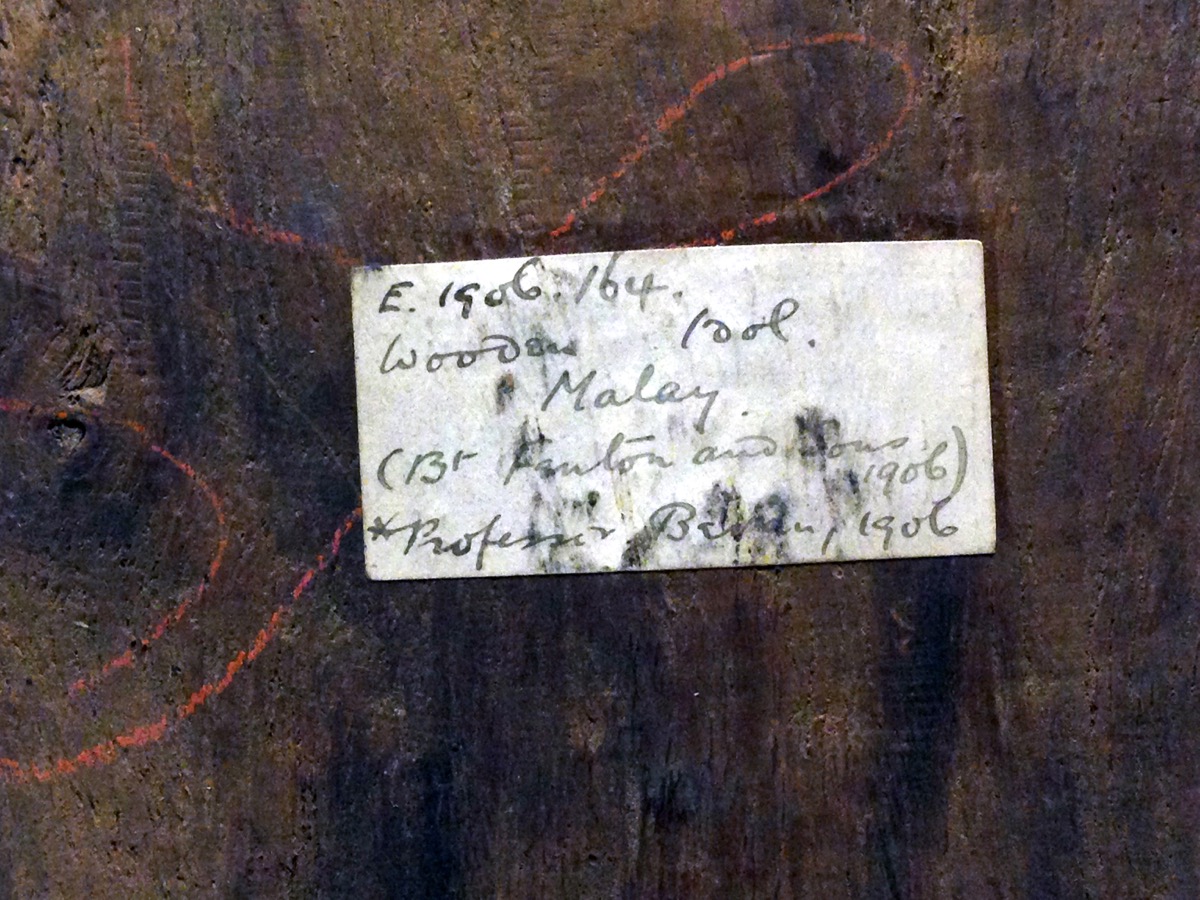 E. 1906.164.
Wooden Idol.
Malay.
(Bt Fenton and Sons.
1906)
*Professor Bevan, 1906